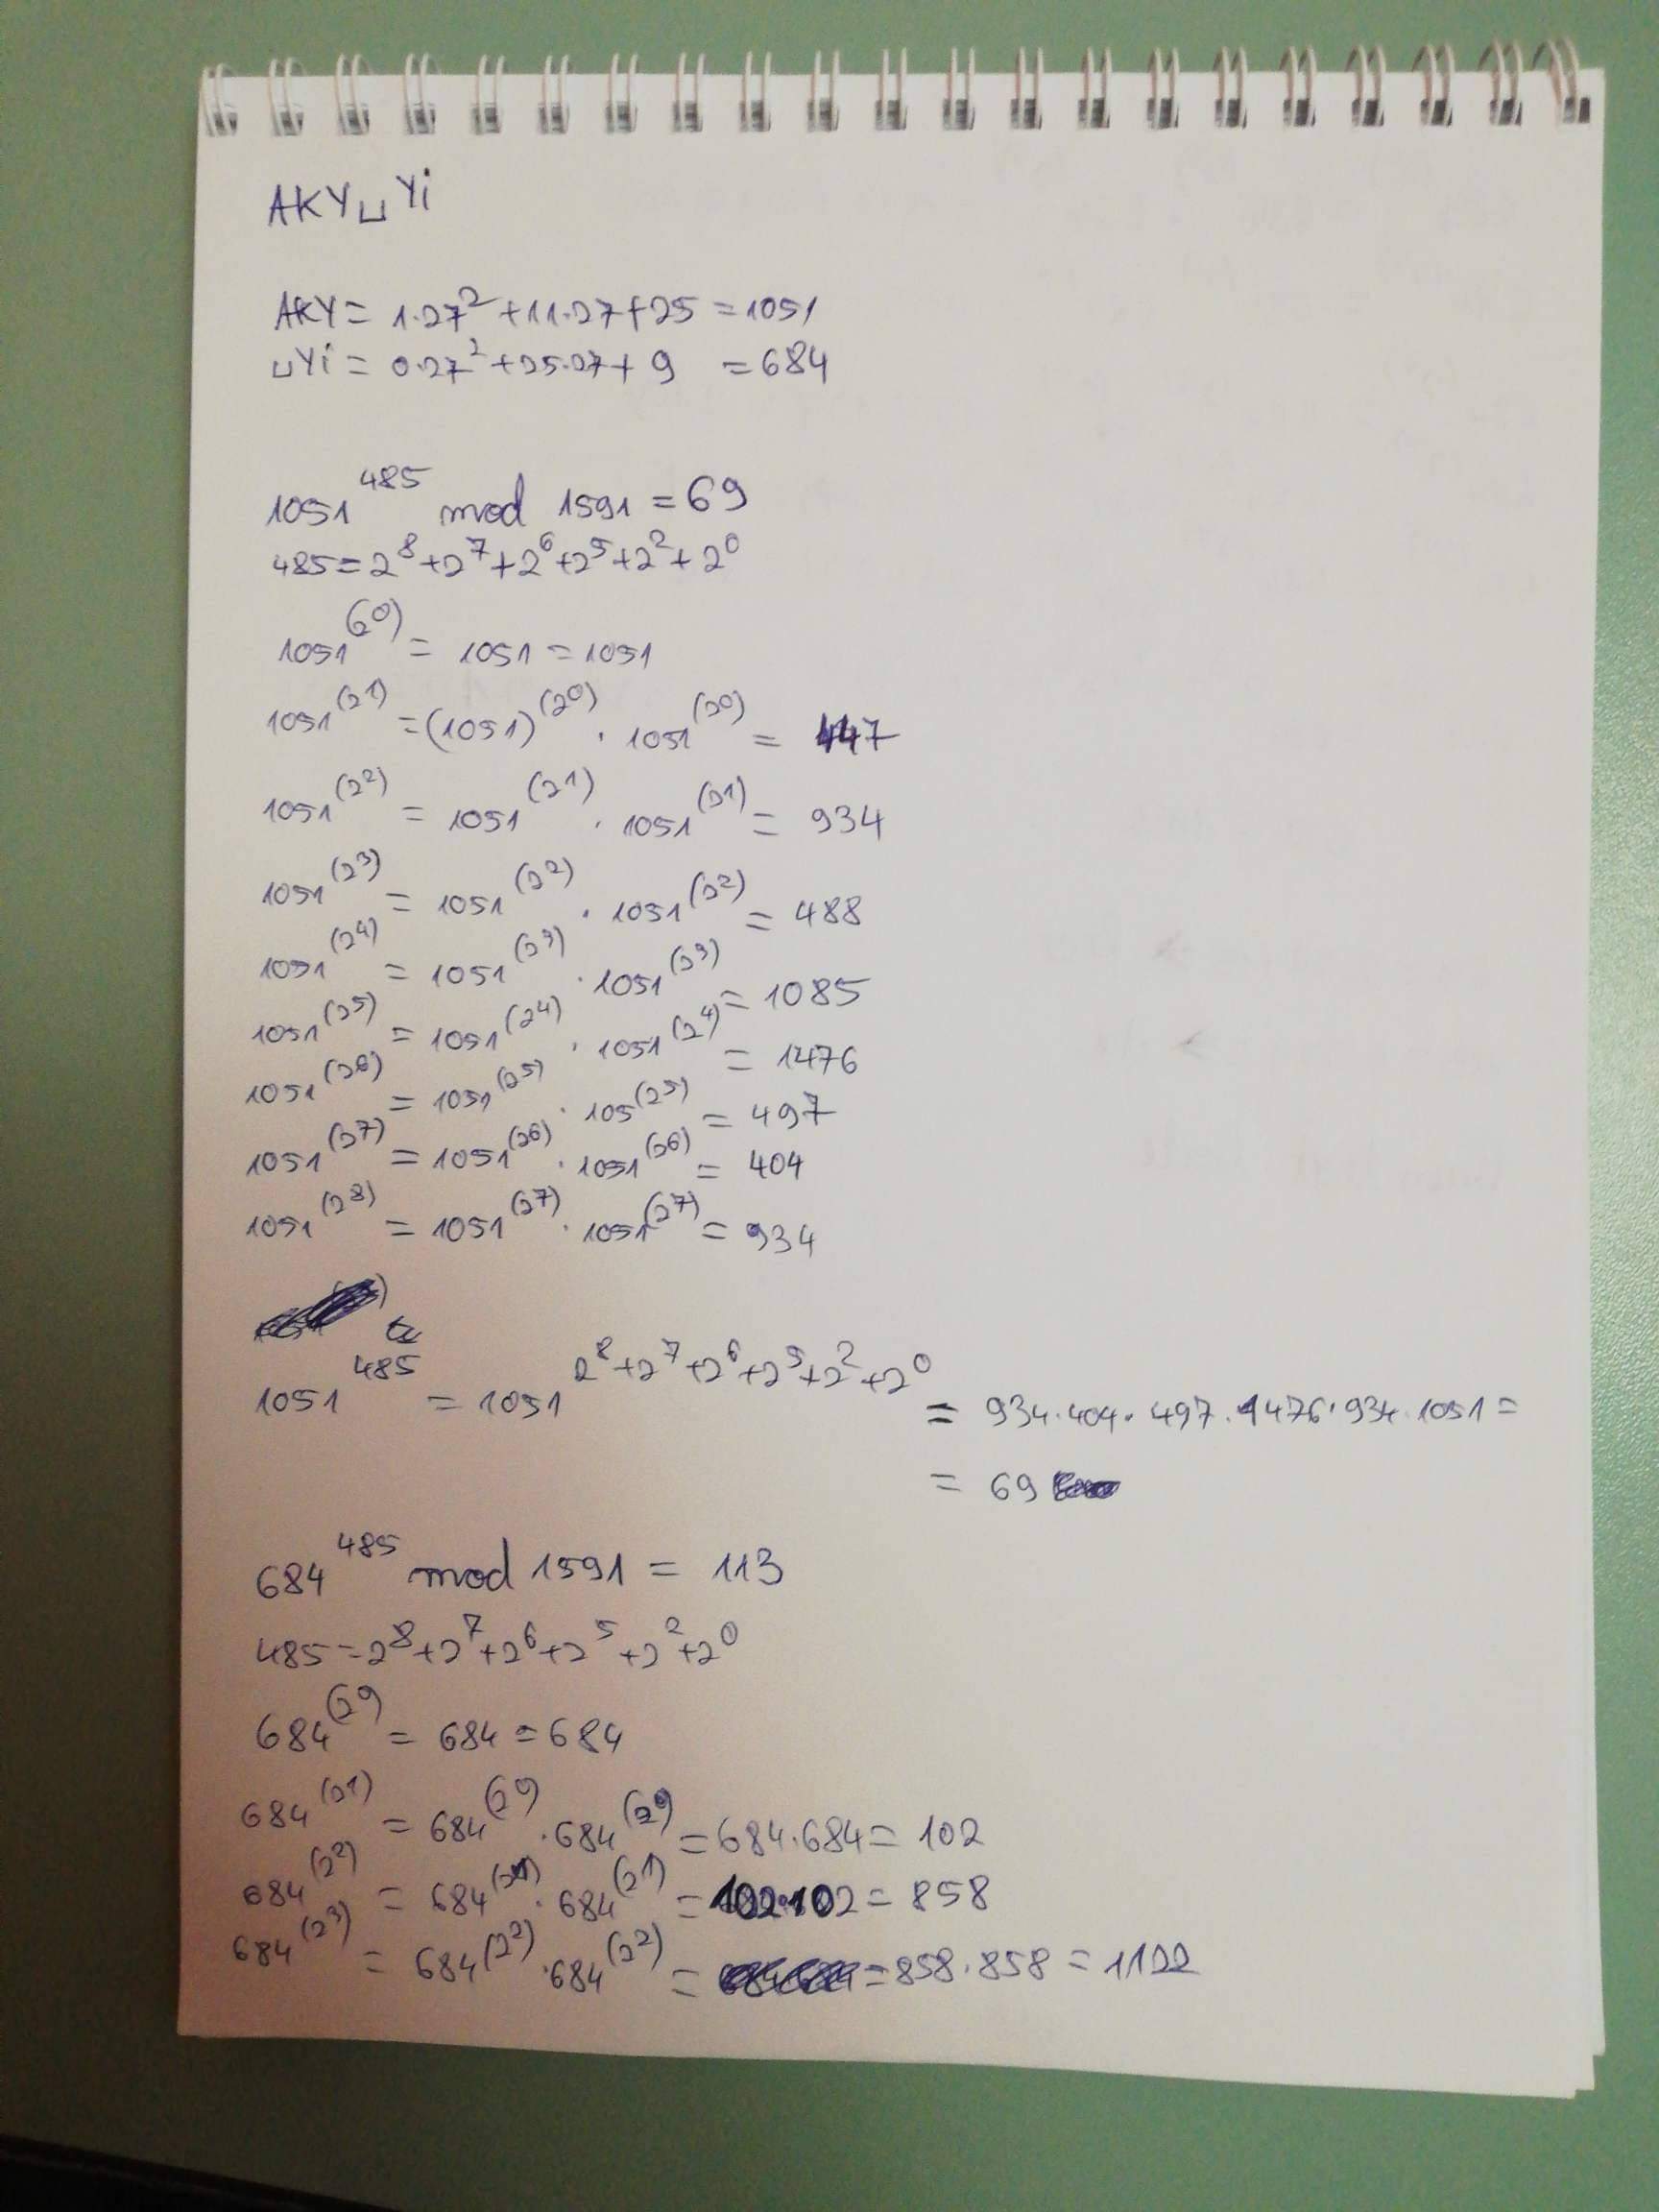 AKY␣Yi
AKY = 1·27² + 11·27 + 25 = 1051
␣Yi = 0·27² + 25·27 + 9 = 684
1051^485 mod 1591 = 69
485 = 2^8 + 2^7 + 2^6 + 2^5 + 2^2 + 2^0
1051^(2^0) = 1051 = 1051
1051^(2^1) = (1051)^(2^0) · 1051^(2^0) = 447
1051^(2^2) = 1051^(2^1) · 1051^(2^1) = 934
1051^(2^3) = 1051^(2^2) · 1051^(2^2) = 488
1051^(2^4) = 1051^(2^3) · 1051^(2^3) = 1085
1051^(2^5) = 1051^(2^4) · 1051^(2^4) = 1476
1051^(2^6) = 1051^(2^5) · 105^(2^5) = 497
1051^(2^7) = 1051^(2^6) · 1051^(2^6) = 404
1051^(2^8) = 1051^(2^7) · 1051^(2^7) = 934
1051^485 = 1051^(2^8 + 2^7 + 2^6 + 2^5 + 2^2 + 2^0) = 934·404·497·1476·934·1051 =
= 69
684^485 mod 1591 = 113
485 = 2^8 + 2^7 + 2^6 + 2^5 + 2^2 + 2^0
684^(2^0) = 684 = 684
684^(2^1) = 684^(2^0) · 684^(2^0) = 684·684 = 102
684^(2^2) = 684^(2^1) · 684^(2^1) = 102·102 = 858
684^(2^3) = 684^(2^2) · 684^(2^2) = = 858·858 = 1122